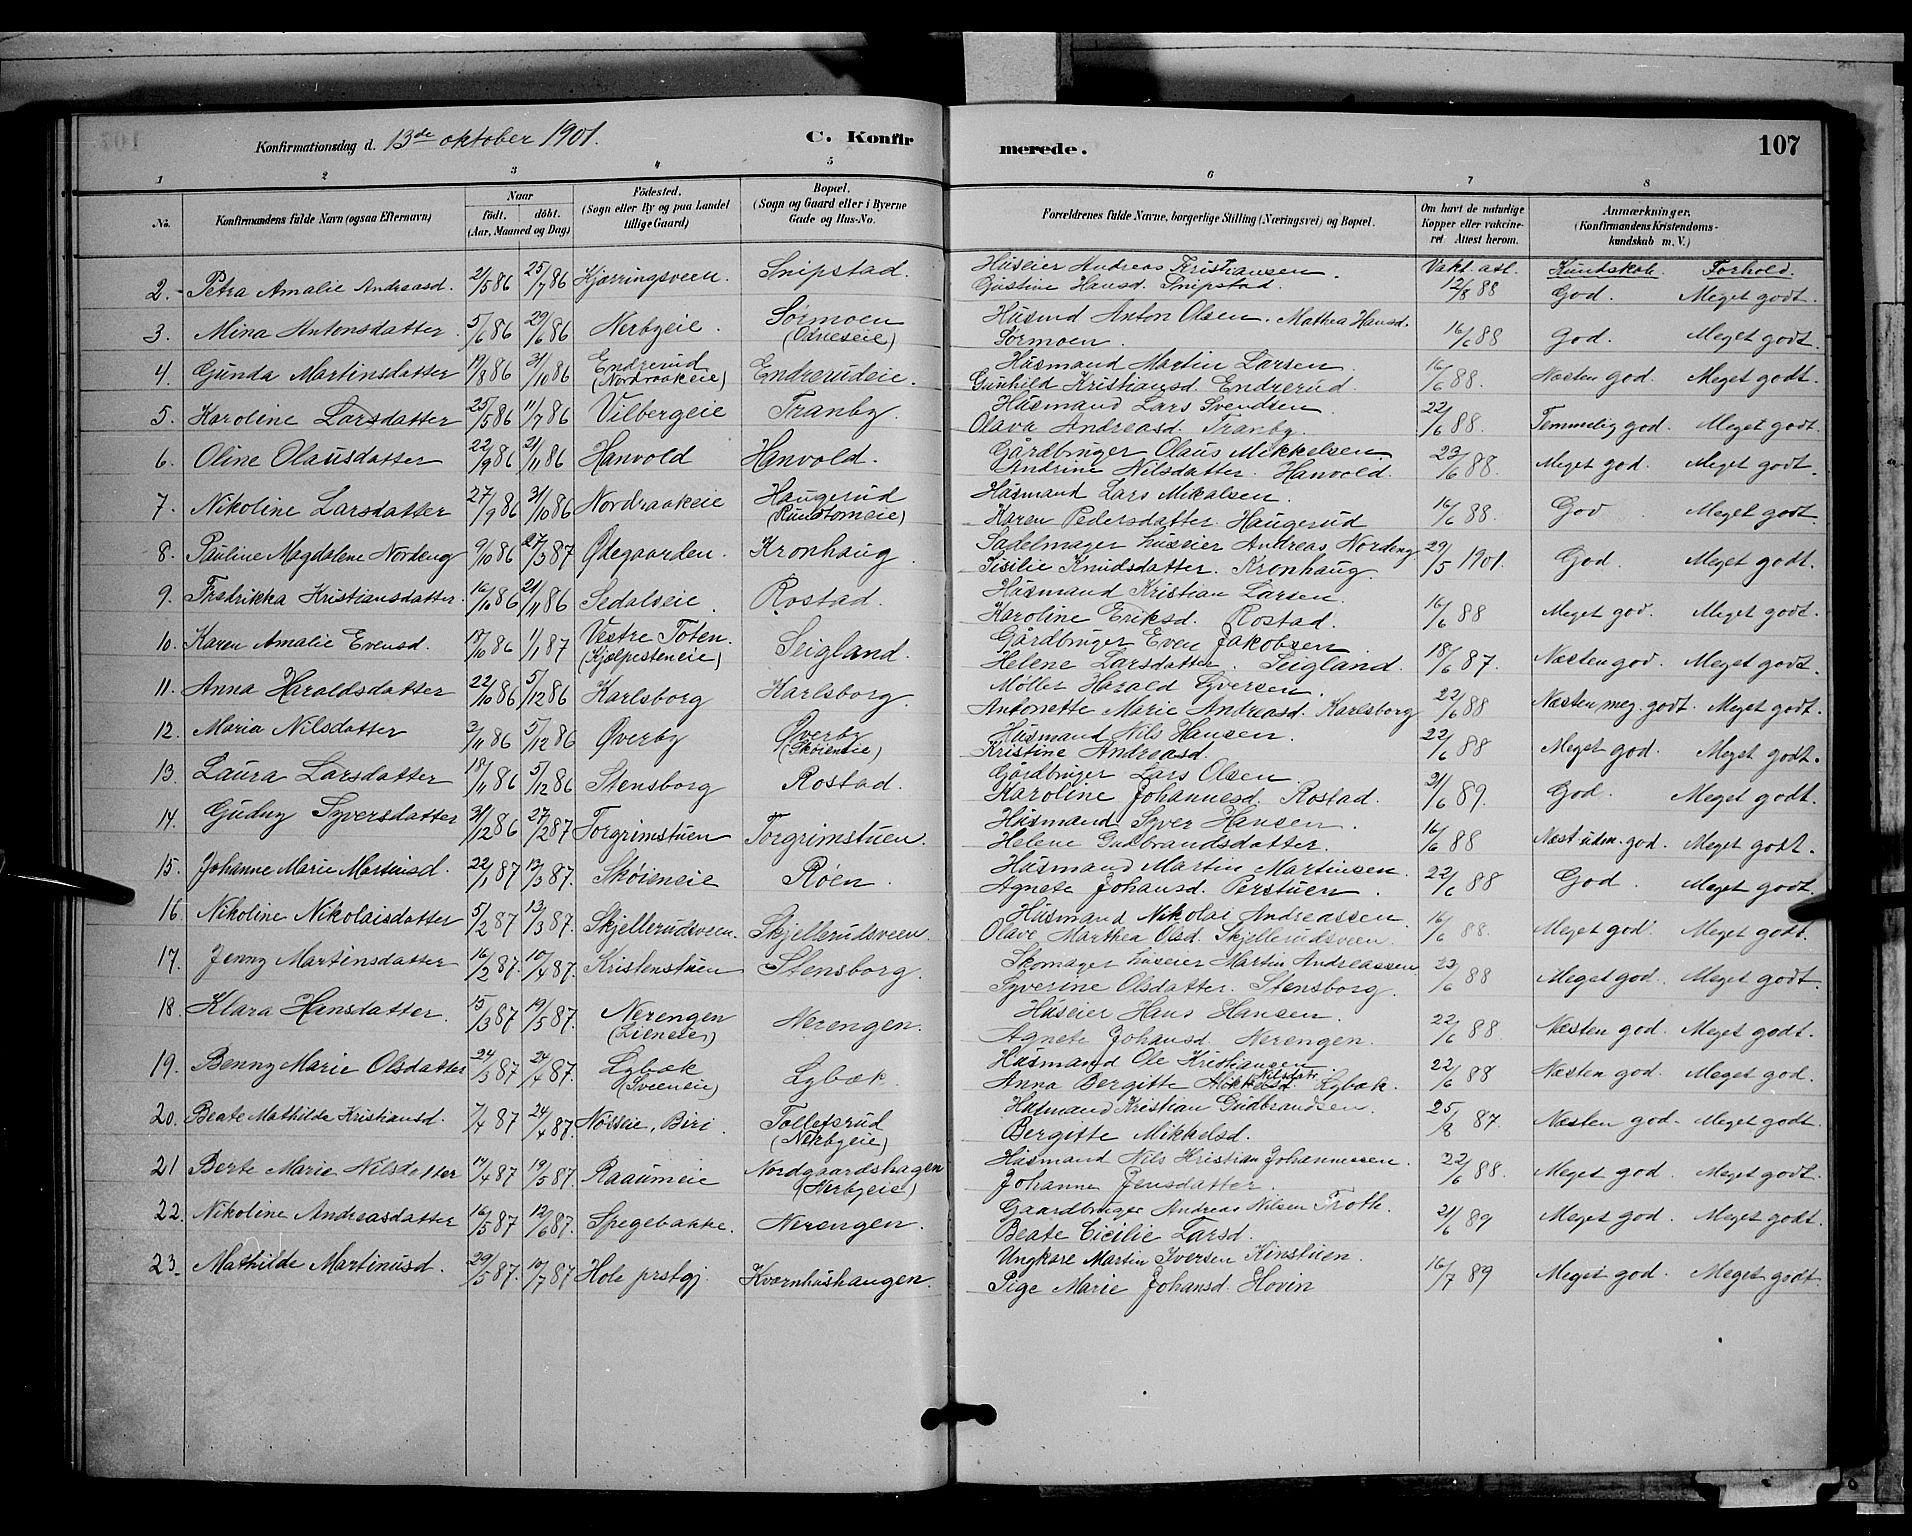 Konfirmationsdag d. 13de oktober 1901. C. Konfirmerede. 107
1 2 3 4 5 6 7 8
No. Konfirmandens fulde Navn (ogsaa Efternavn) Naar født. døbt. (Aar, Maaned og Dag) Fødested. (Sogn eller By og paa Landet tillige Gaard) Bopæl. (Sogn og Gaard eller i Byerne Gade og Hus-No. Forældrenes fulde Navne, borgerlige Stilling (Næringsvei) og Bopæl. Om havt de naturlige Kopper eller vakcineret Attest herom. Anmærkninger. (Konfirmandens Kristendomskundskab m. V.)
Vakt. att. Kundskab. Forhold.
2. Petra Amalie Andreasd. 2/5 86 25/7 86 Kjærringsveen. Snipstad. Huseier Andreas Kristiansen. Gustine Hansd. Snipstad. 12/8 88 God. Meget godt.
3. Mina Antonsdatter. 5/6 86 29/6 86 Nerbyeie. Sørmoen (Odneseie) Husmd Anton Olsen. Mathea Hansd. Sørmoen. 16/6 88 God. Meget godt.
4. Gunda Martinsdatter 19/8 86 31/10 86 Endrerud (Nordraakeie) Endrerudeie. Husmand Martin Larsen. Gunhild Kristiansd. Endrerud. 16/6 88. Næsten god. Meget godt.
5. Karoline Larsdatter 25/5 86 11/7 86 Vilbergeie Tranby. Husmand Lars Svendsen. Olava Andreasd. Tranby. 22/6 88. Temmelig god. Meget godt.
6. Oline Olausdatter 22/9 86 21/11 86 Hanvold Hanvold. Gårdbruger Olaus Mikkelsen Andrine Nilsdatter. Hanvold. 23/6 88. Meget god. Meget godt.
7. Nikoline Larsdatter 27/9 86 31/10 86 Nordraakeie Haugerud (Rundtomeie) Husmand Lars Mikalsen. Karen Pedersdatter. Haugerud 16/6 88. God Meget godt.
8. Pauline Magdalene Nordeng 9/10 86 27/3 87 Ødegaarden. Kronhaug Sadelmager huseier Andreas Nordeng Sisilie Knudsdatter. Kronhaug. 29/5 1901. God. Meget godt.
9. Fredrikka Kristiansdatter. 16/10 86 21/11 86 Sedalseie. Rostad. Husmand Kristian Larsen. Karoline Eriksd. Rostad. 16/6 88 Meget god. Meget godt.
10. Karen Amalie Evensd. 18/10 86 1/1 87 Vestre Toten. (Kjølpesteneie) Seigland. Gårdbruger Even Jakobsen Helene Larsdatter. Seigland. 18/6 87. Næsten god. Meget godt.
11. Anna Haraldsdatter 22/10 86 5/12 86 Karlsborg Karlsborg. Møller Harald Syversen. Antonette Marie Andreasd. Karlsborg 22/6 88 Næsten meg. godt. Meget godt.
12. Maria Nilsdatter 3/11 86 5/12 86 Øverby Øverby (Skøieneie) Husmand Nils Hansen. Kristine Andreasd. 22/6 88 Meget god. Meget godt.
13. Laura Larsdatter 18/11 86 5/12 86 Stensborg Rostad. Gårdbruger Lars Olsen. Karoline Johannesd. Rostad. 21/6 89. God. Meget godt.
14. Gudny Syversdatter 31/12 86 27/2 87 Torgrimstuen Torgrimstuen. Husmand Syver Hansen. Helene Gudbrandsdatter. 16/6 88 Næst udm. god. Meget godt.
15. Johanne Marie Martinsd. 22/1 87 13/3 87. Skøieneie Røen. Husmand Martin Martinsen. Agnete Johansd. Perstuen. 22/6 88 God. Meget godt.
16. Nikoline Nikolaisdatter 5/2 87 13/3 87. Skjellerudsveen. Skjellerudsveen. Husmand Nikolai Andreassen Olave Marthea Olsd. Skjellerudsveen. 16/6 88. Meget god. Meget godt.
17. Jenny Martinsdatter 16/2 87. 10/4 87. Kristenstuen Stensborg. Skomager huseier Martin Andreassen Syverine Olsdatter. Stensborg. 23/6 88 Meget god. Meget godt.
18. Klara Hansdatter. 15/3 87 19/5 87. Nerengen (Lieneie) Nerengen. Huseier Hans Hansen. Agnete Johansd. Nerengen. 22/6 88 Næsten god. Meget godt.
19. Benny Marie Olsdatter 24/3 87 24/4 87. Lybæk (Sveeneie) Lybæk. Husmand Ole Kristiansen Anna Bergitte Nilsdatr. Lybæk. 22/6 88 Næsten god. Meget god.
20. Beate Mathilde Kristiansd. 7/4 87 24/4 87. Nøsseie, Biri. Tollefsrud (Nerbyeie) Husmand Kristian Gudbrandsen. Bergitte Mikkelsd. 25/8 87. Næsten god. Meget godt.
21 Berte Marie Nilsdatter 17/4 87 19/5 87. Raaumeie Nordgaardshagen (Nerbyeie) Husmand Nils Kristian Johannessen. Johanne Jensdatter. 22/6 88. Meget god. Meget godt.
22. Nikoline Andreasdatter 16/5 87 12/6 87. Spegebakke. Nerengen. Gaardbruger Andreas Nilsen Troth. Beate Cicilie Larsd. 21/6 89 Meget god. Meget godt.
23. Mathilde Martinusd. 29/5 87. 10/7 87 Hole prstgj. Kværnhushaugen. Ungkare Martin Iversen Kinstuen. Pige Marie Johansd. Hovin 16/7 89 Meget god. Meget godt.